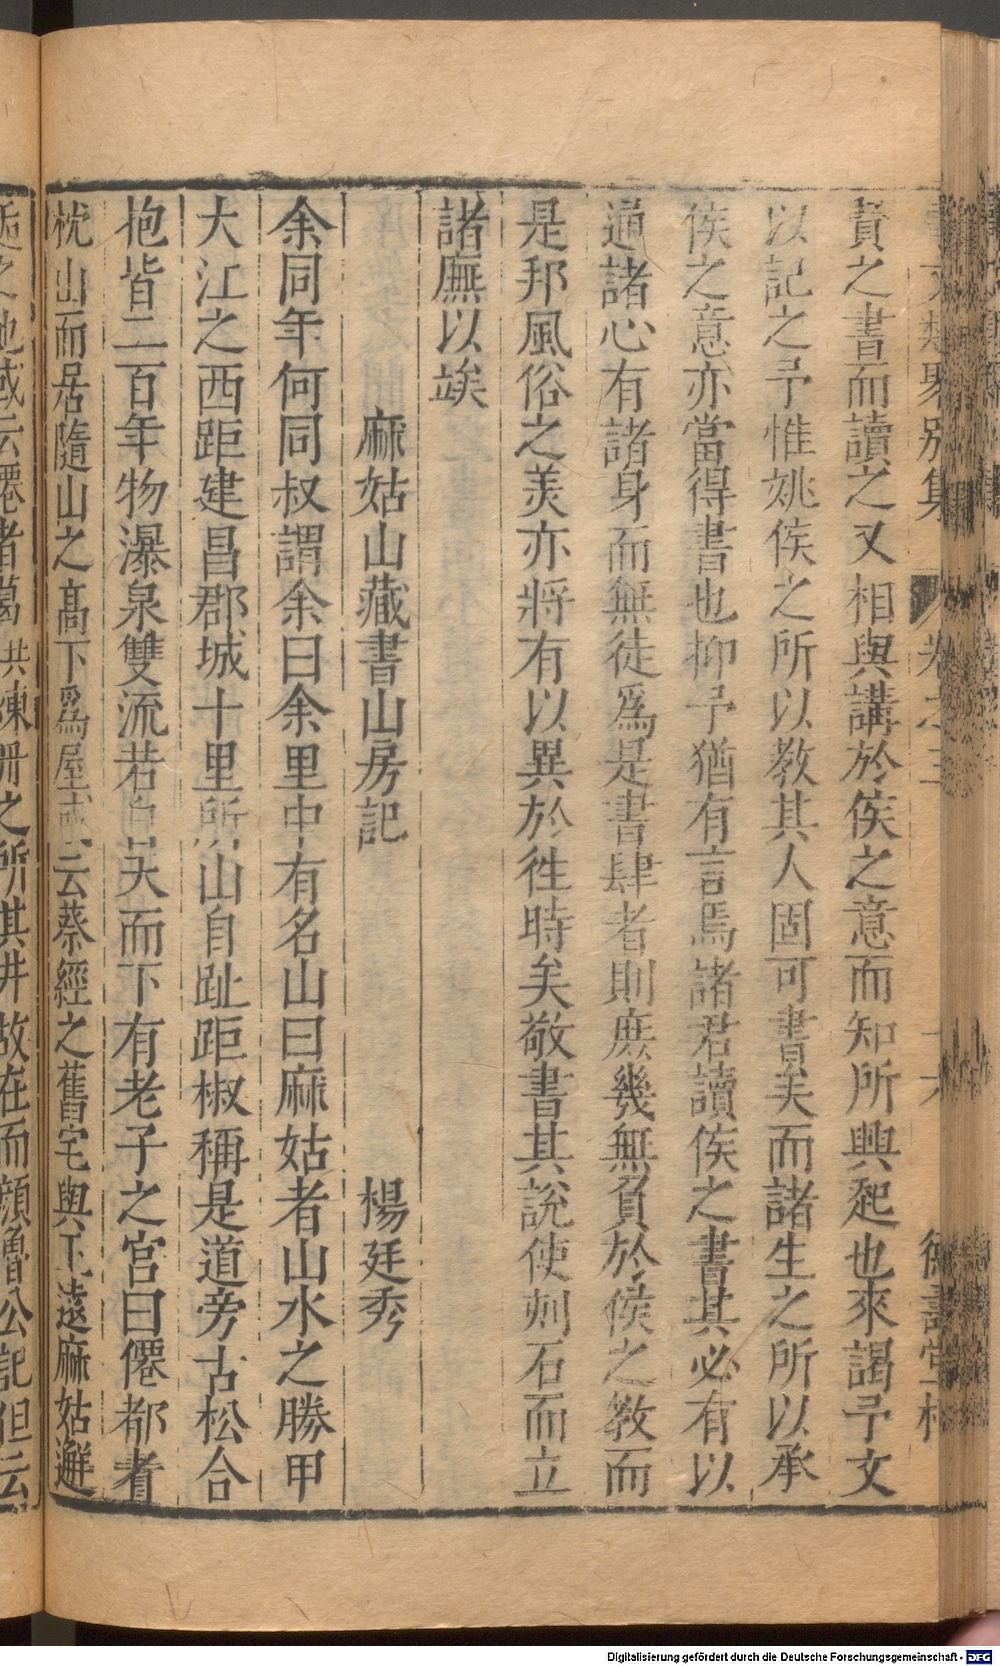 事文類聚別集 卷之三 十六 德壽堂梓
賢之書而讀之又相與講於侯之意而知所興起也來謁予文
以記之予惟姚侯之所以教其人固可書矣而諸生之所以承
侯之意亦當得書也抑予猶有言焉諸君讀侯之書其必有以
通諸心有諸身而無徒爲是書肆者則庶幾無負於侯之教而
是邦風俗之美亦將有以異於徃時矣敬書其說使刻石而立
諸廡以竢
麻姑山藏書山房記 楊廷秀
余同年何同叔謂余曰余里中有名山曰麻姑者山水之勝甲
大江之西距建昌郡城十里所山自趾距椒稱是道旁古松合
抱皆二百年物瀑泉雙流若自天而下有老子之宫曰僊都者
枕山而居隨山之高下爲屋或云蔡經之舊宅與王遠麻姑邂
逅之地或云僊者葛洪煉丹之所其井故在而顔魯公記但云
Digitalisierung gefördert durch die Deutsche Forschungsgemeinschaft - DFG